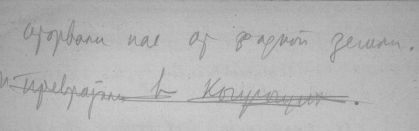 оторвали нас от родной земли.
и превратили в